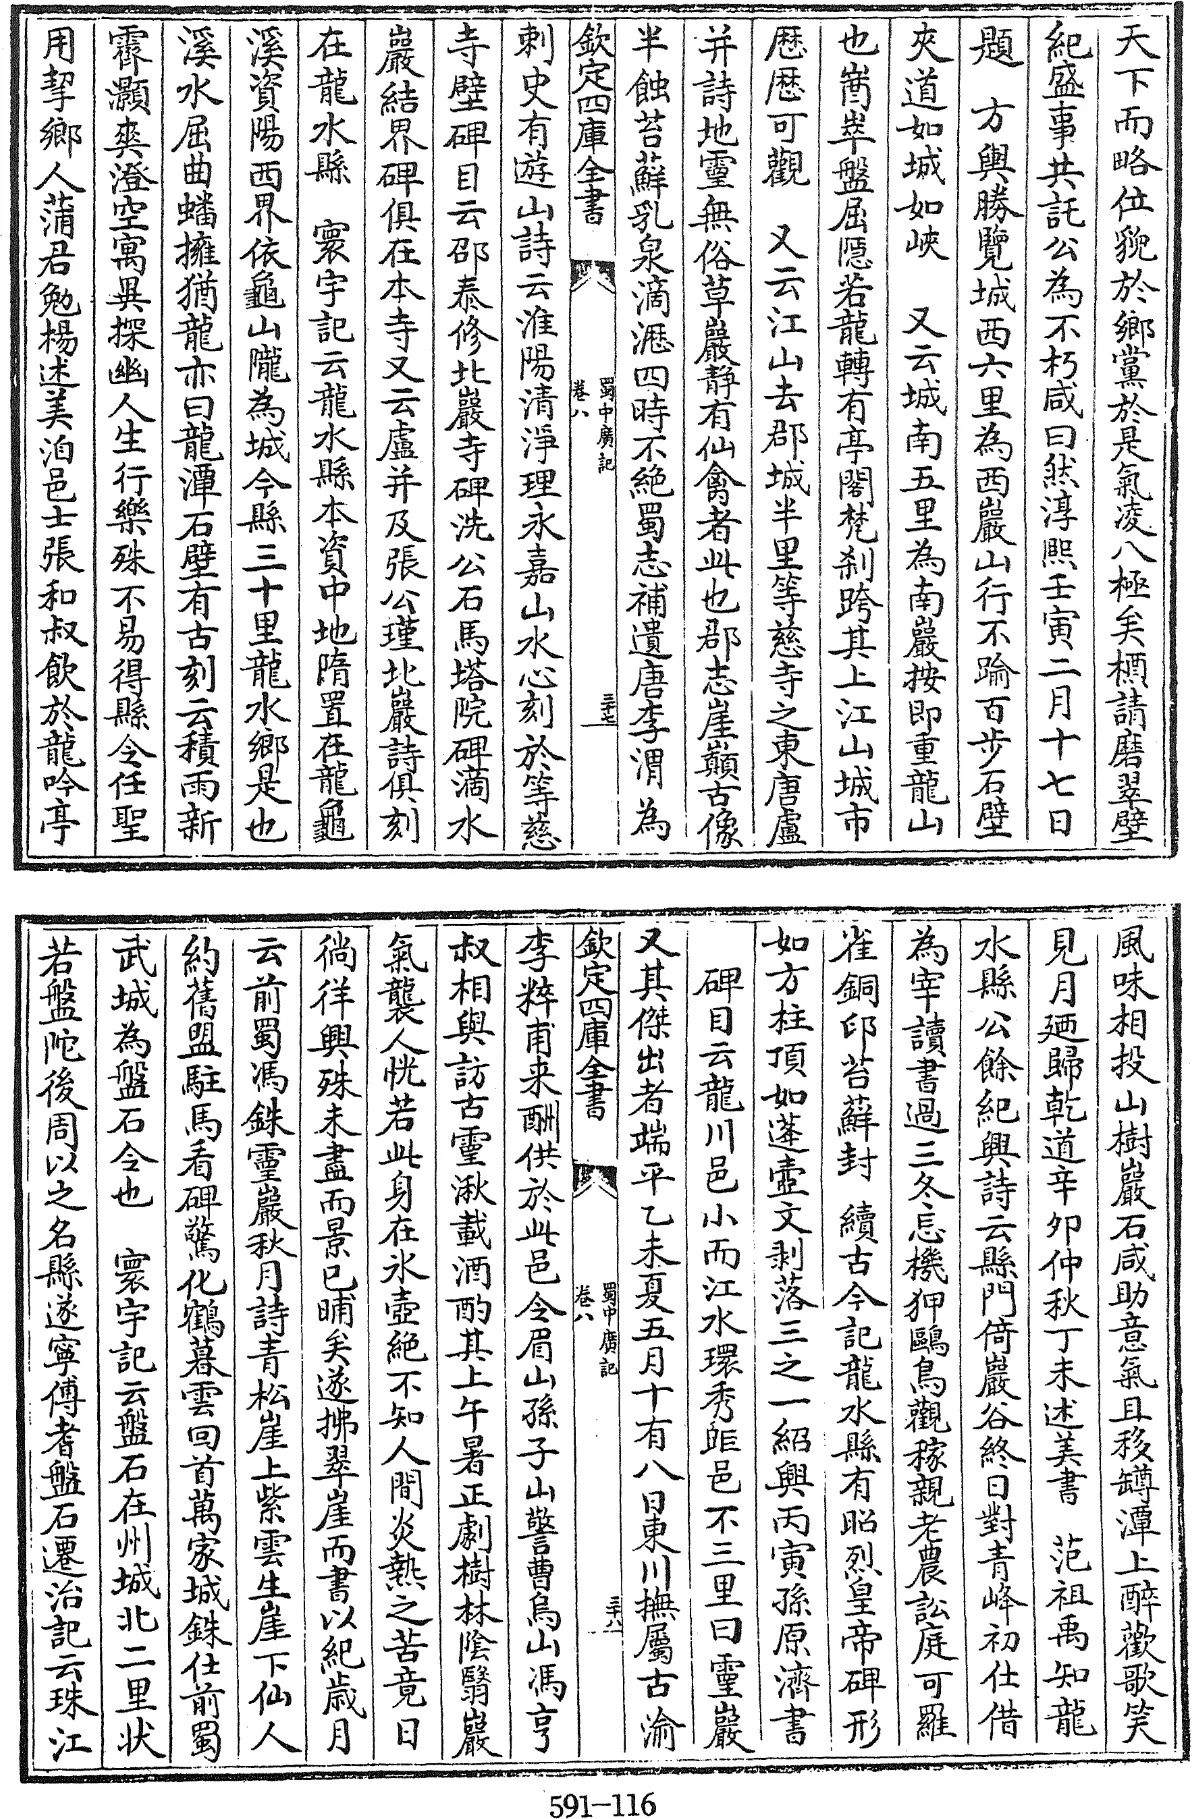 天下而略位貌於鄉黨於是氣凌八極矣櫝請磨翠壁
紀盛事共託公為不朽咸曰然淳熙壬寅二月十七日
題　方輿勝覽城西六里為西巖山行不踰百步石壁
夾道如城如峽　又云城南五里為南巖按即重龍山
也崷崒盤屈隠若龍轉有亭閣梵刹跨其上江山城市
歴歴可觀　又云江山去郡城半里等慈寺之東唐盧
并詩地靈無俗草巖静有仙禽者此也郡志崖巔古像
半蝕苔蘚乳泉滴瀝四時不絶蜀志補遺唐李渭為
欽定四庫全書　蜀中廣記 卷八　三十七
刺史有遊山詩云淮陽清淨理永嘉山水心刻於等慈
寺壁碑目云邵泰修北巖寺碑洗公石馬塔院碑滴水
巖結界碑俱在本寺又云盧并及張公瑾北巖詩俱刻
在龍水縣　寰宇記云龍水縣本資中地隋置在龍龜
溪資陽西界依龜山隴為城今縣三十里龍水鄉是也
溪水屈曲蟠擁猶龍亦曰龍潭石壁有古刻云積雨新
霽灝爽澄空寓異探幽人生行樂殊不易得縣令任聖
用挈鄉人蒲君勉楊述美泊邑士張和叔飲於龍吟亭
風味相投山樹巖石咸助意氣且移罇潭上醉歡歌笑
見月廼歸乾道辛夘仲秋丁未述美書　范祖禹知龍
水縣公餘紀興詩云縣門倚巖谷終日對青峰初仕借
為宰讀書過三冬忘機狎鷗鳥觀稼親老農訟庭可羅
雀銅印苔蘚封　續古今記龍水縣有昭烈皇帝碑形
如方柱頂如蓬壺文剥落三之一紹興丙寅孫原濟書
碑目云龍川邑小而江水環秀距邑不三里曰靈巖
又其傑出者端平乙未夏五月十有八日東川撫屬古渝
欽定四庫全書　蜀中廣記 卷八　三十八
李粹甫来酬供於此邑令眉山孫子山警曹烏山馮亨
叔相與訪古靈湫載酒酌其上午暑正劇樹林陰翳巖
氣襲人恍若此身在氷壺絶不知人間炎熱之苦竟日
徜徉興殊未盡而景已晡矣遂拂翠崖而書以紀歳月
云前蜀馮銖靈巖秋月詩青松崖上紫雲生崖下仙人
約舊盟駐馬看碑驚化鶴暮雲回首萬家城銖仕前蜀
武城為盤石令也　寰宇記云盤石在州城北二里状
若盤陀後周以之名縣遂寧傅耆盤石遷治記云珠江
591—116